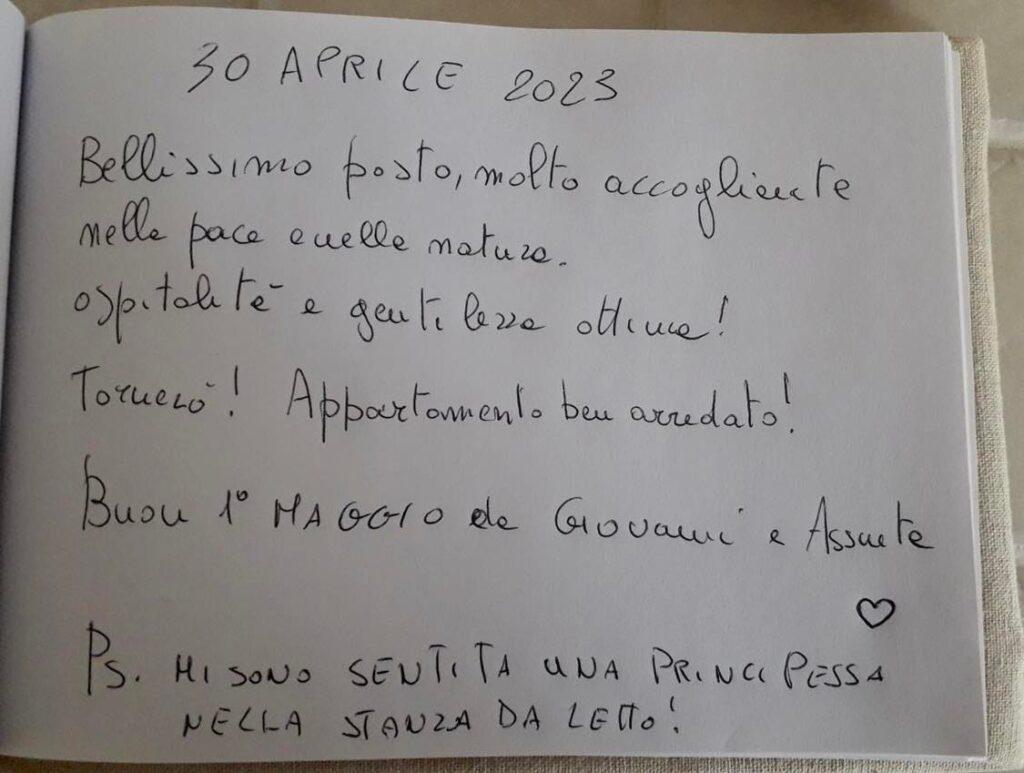 30 APRILE 2023
Bellissimo posto, molto accogliente
nella pace e nella natura.
Ospitalità e gentilezza ottima!
Tornerò! Appartamento ben arredato!
Buon 1° MAGGIO da Giovanni e Assunta
♡
Ps. MI SONO SENTITA UNA PRINCIPESSA
NELLA STANZA DA LETTO!